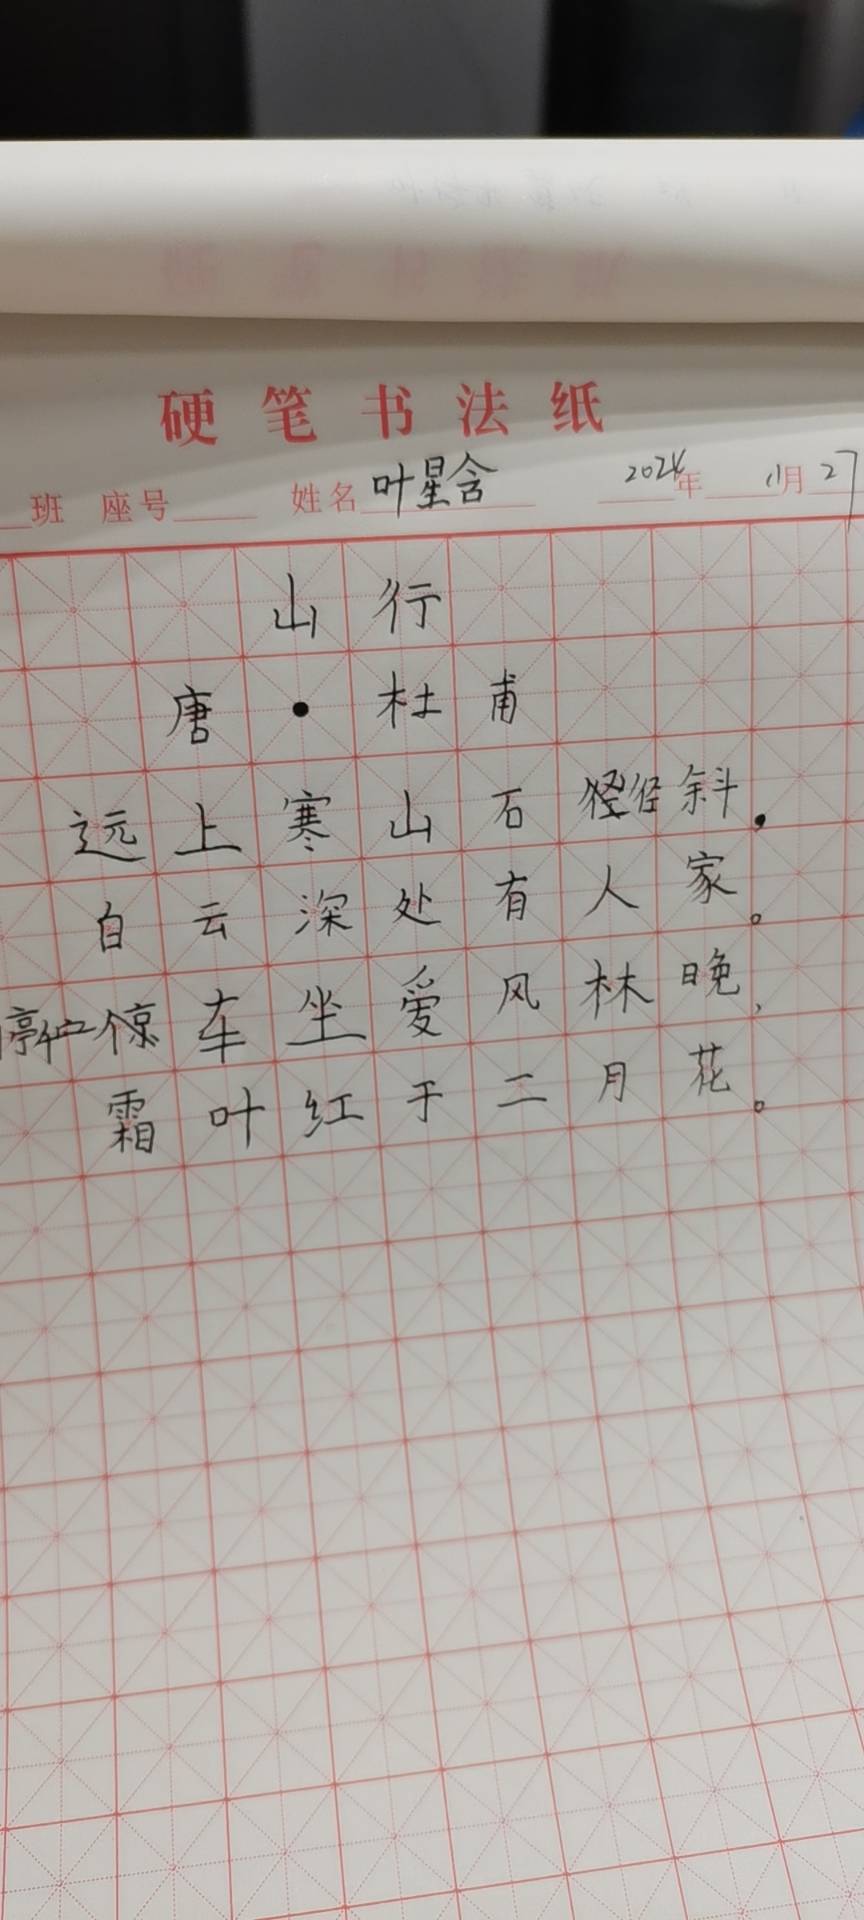 硬笔书法纸
班 座号 姓名 叶星含 2024年 11月27
山行
唐·杜甫
远上寒山石径径斜。
白云深处有人家。
停车坐爱风林晚,
霜叶红于二月花。